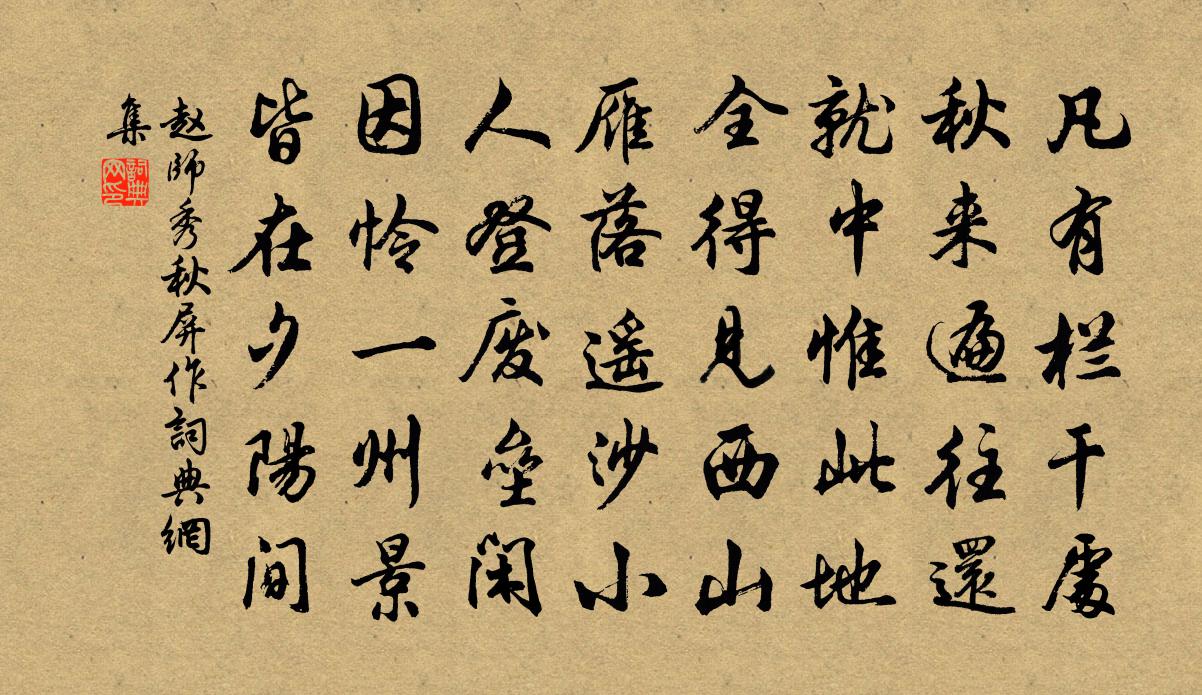 凡有栏干處
秋来遍往還
就中惟此地
全得見西山
雁落遥沙小
人登废垒闲
因怜一州景
皆在夕陽间
赵師秀秋屏作詞典網
集
詞典
网印